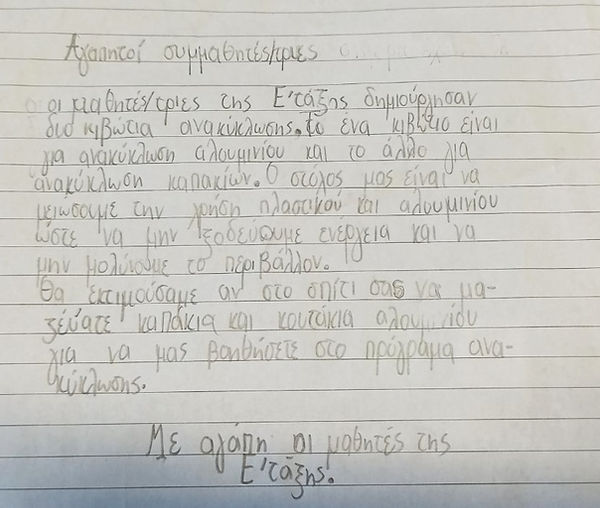 Αγαπητοί συμμαθητές/τριες
οι μαθητές/τριες της Ε'τάξης δημιούργησαν
δυο κιβώτια ανακύκλωσης. Το ένα κιβώτιο είναι
για ανακύκλωση αλουμινίου και το άλλο για
ανακύκλωση καπακίων. Ο στόχος μας είναι να
μειώσουμε την χρήση πλαστικού και αλουμινίου
ώστε να μην ξοδεύουμε ενέργεια και να
μην μολύνουμε το περιβάλλον.
Θα εκτιμούσαμε αν στο σπίτι σας να μα-
ζεύατε καπάκια και κουτάκια αλουμινίου
για να μας βοηθήσετε στο πρόγραμα ανα-
κύκλωσης.
Με αγάπη οι μαθητές της
Ε'τάξης.